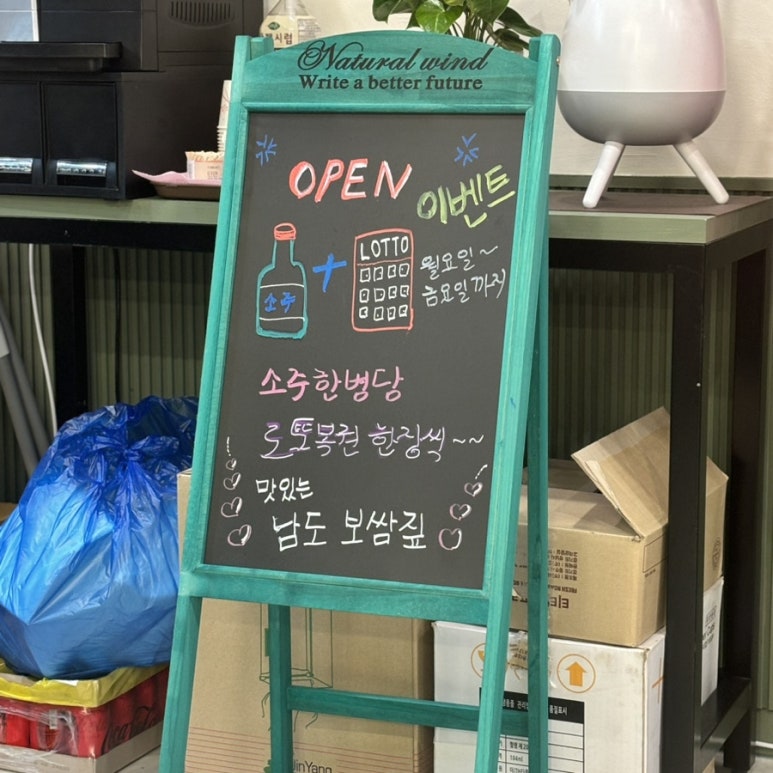 Natural wind
Write a better future
OPEN 이벤트
소주 + LOTTO
월요일~
금요일까지
소주한병당
로또복권 한장씩~~
맛있는
남도 보쌈짚